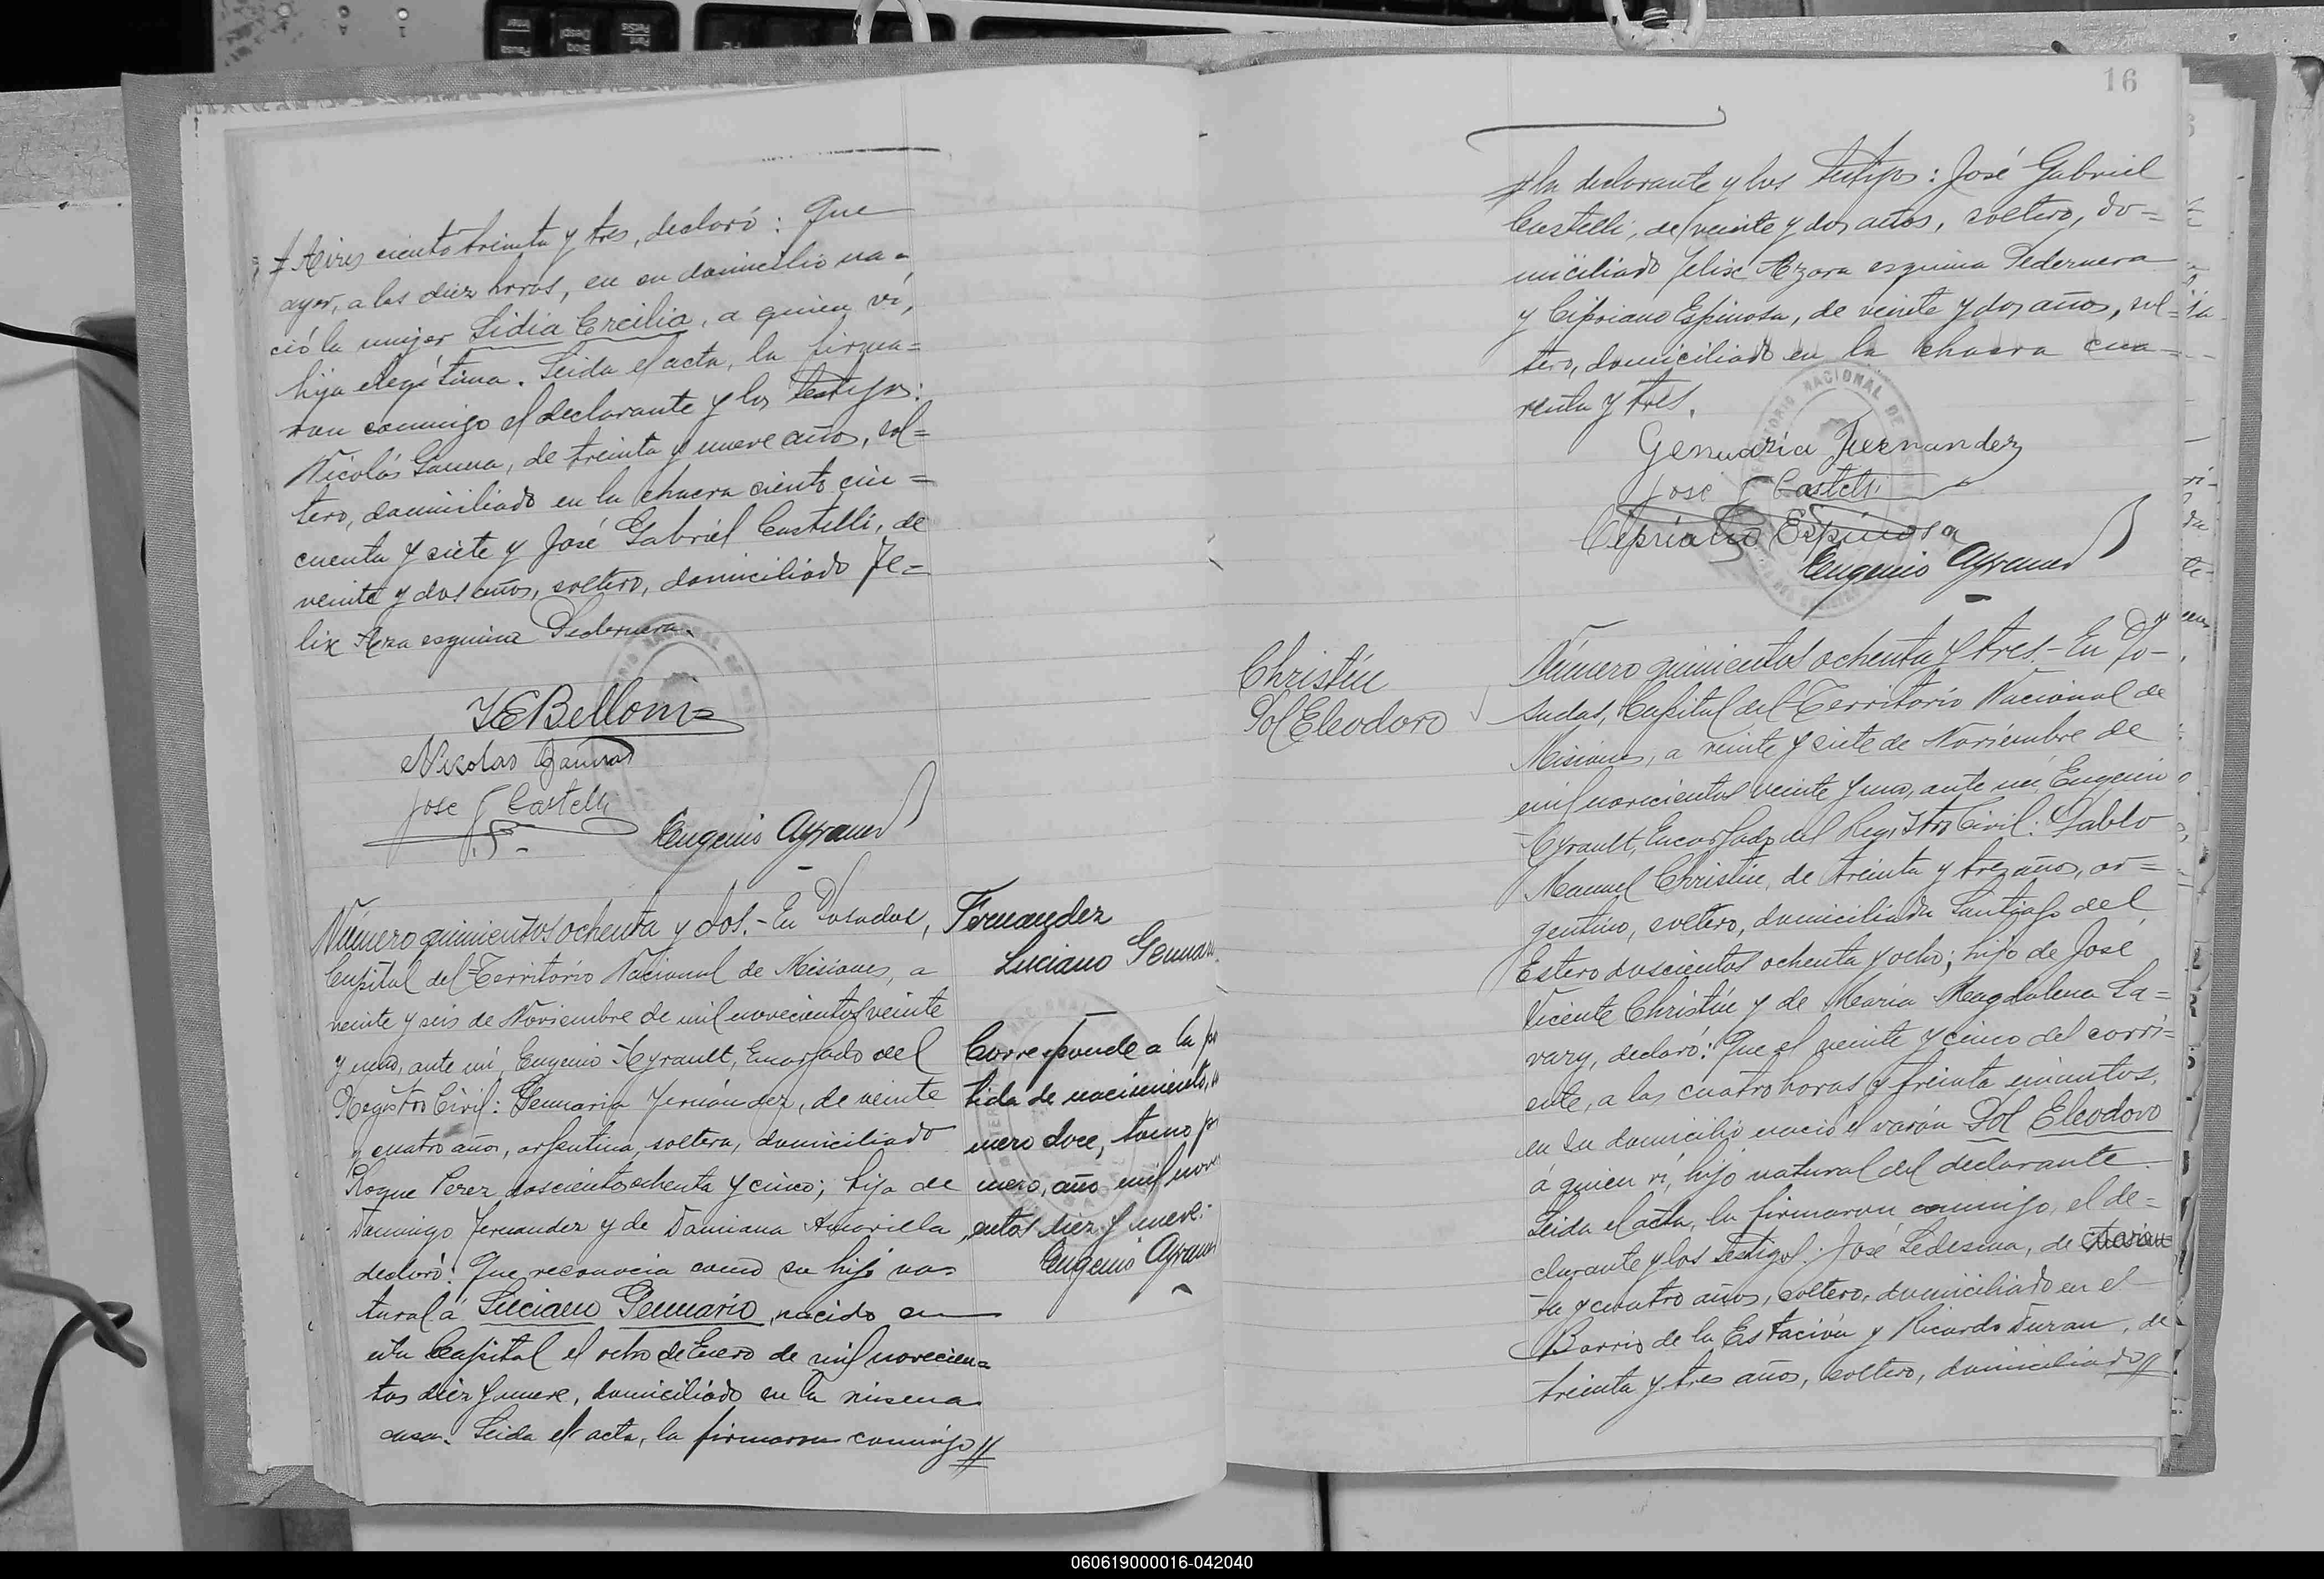 # Aires ciento treinta y tres, declaró: Que
ayer, a las diez horas, en su domicilio na=
ció la mujer Lidia Ercilia, a quien ví,
hija ilegítima. Leida el acta, la firma=
ron conmigo el declarante y los testigos:
Nicolás Gauna, de treinta y nueve años, sol=
tero, domiciliado en la chacra ciento cin=
cuenta y siete y José Gabriel Castelli, de
veinte y dos años, soltero, domiciliado Fe=
lix Aza esquina Pedernera.
Belloni
Nicolas Gauna
Jose G Castelli
Eugenio Ayrault
Número quinientos ochenta y dos.- En Posadas,
Capital del Territorio Nacional de Misiones, a
veinte y seis de Noviembre de mil novecientos veinte
y uno, ante mí, Eugenio Ayrault, Encargado del
Registro Civil: Genuaria Fernández, de veinte
y cuatro años, argentina, soltera, domiciliado
Roque Perez doscientos ochenta y cinco; hija de
Domingo Fernandez y de Damiana Amarilla,
declaró: Que reconocia como su hijo na=
tural á Luciano Genuario, nacido en
esta Capital el ocho de Enero de mil novecien=
tos diez y nueve, domiciliado en la misma
casa. Leida el acta, la firmaron conmigo //
Fernandez
Luciano Genuar
Corresponde a la par
tida de nacimiento, nú
mero doce, tomo pri
mero, año mil novec
entos diez y nueve.-
Eugenio Ayrault
16
# la declarante y los testigos: José Gabriel
Castelli, de veinte y dos años, soltero, do=
miciliado Felix Azara esquina Pedernera
y Cipriano Espinosa, de veinte y dos años, sol=
tero, domiciliado en la chacra cua=
renta y tres.
Genuaria Fernandez
Jose G Castelli
Cipriano Espinosa
Eugenio Ayrault
Christín
Sol Eleodoro
Número quinientos ochenta y tres.- En Po=
sadas, Capital del Territorio Nacional de
Misiones, a veinte y siete de Noviembre de
mil novecientos veinte y uno, ante mí, Eugenio
Ayrault, Encargado del Registro Civil: Pablo
Manuel Christín, de treinta y tres años, ar=
gentino, soltero, domiciliado Santiago del
Estero doscientos ochenta y ocho; hijo de José
Vicente Christín y de María Magdalena La=
vary, declaró: Que el veinte y cinco del corri=
ente, a las cuatro horas y treinta minutos,
en su domicilio nació el varón Sol Eleodoro
á quien ví, hijo natural del declarante.
Leida el acta, la firmaron conmigo, el de=
clarante y los testigos: José Ledesma, de cuaren
ta y cuatro años, soltero, domiciliado en el
Barrio de la Estación y Ricardo Duran, de
treinta y tres años, soltero, domiciliado //
060619000016-042040